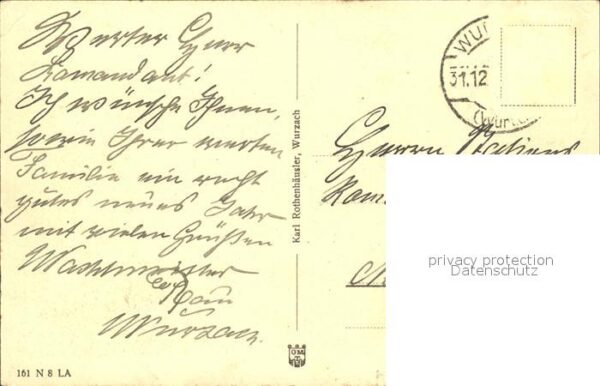 Werter Herr
Komandant!
Ich wünsche Ihnen,
sowie Ihrer werten
Familie ein recht
gutes neues Jahr
mit vielen Grüßen
Wachtmeister
Rau
Wurzach.
161 N 8 LA
Karl Rothenhäusler, Wurzach
WUR
31.12
(Württ
Herrn
Kom
privacy protection
Datenschutz